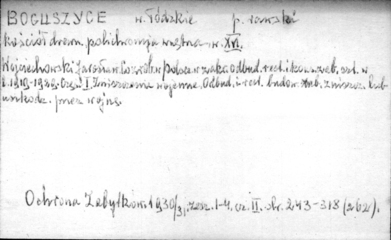 BOGUSZYCE w. łódzkie p. rawski
Kościół drewn. polichromja wnętrza w. XVI.
Wojciechowski Jarosław. Co zrobiono w Polsce w zakr. odbud. rest. i konserw. zab. szt. w
l. 1919-1929. Część I. Zniszczenia wojenne. Odbud. i rest. budow. zab. zniszcz. lub
uszkodz. przez wojnę.
Ochrona Zabytków. 1930/31, zesz. 1-4. cz. II. str. 243-318 (262).